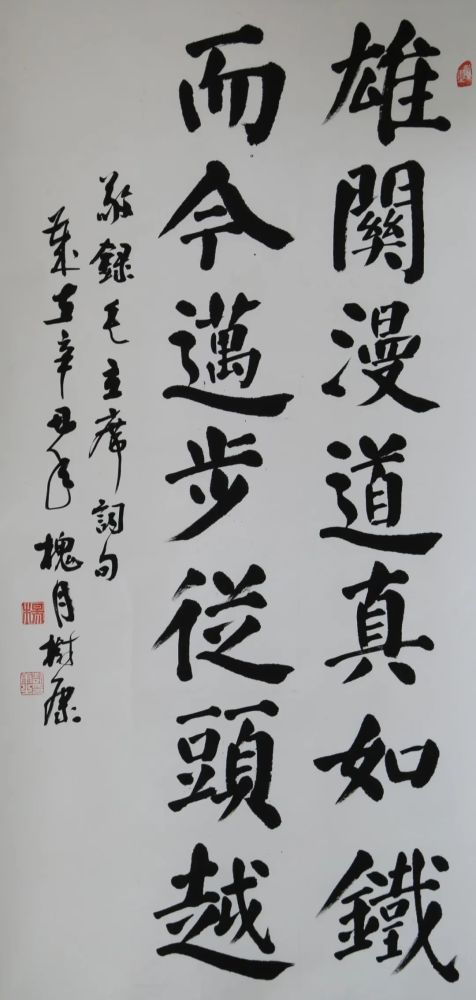 雄關漫道真如鐵
而今邁步從頭越
敬錄毛主席詞句
歲在辛丑年槐月樹康